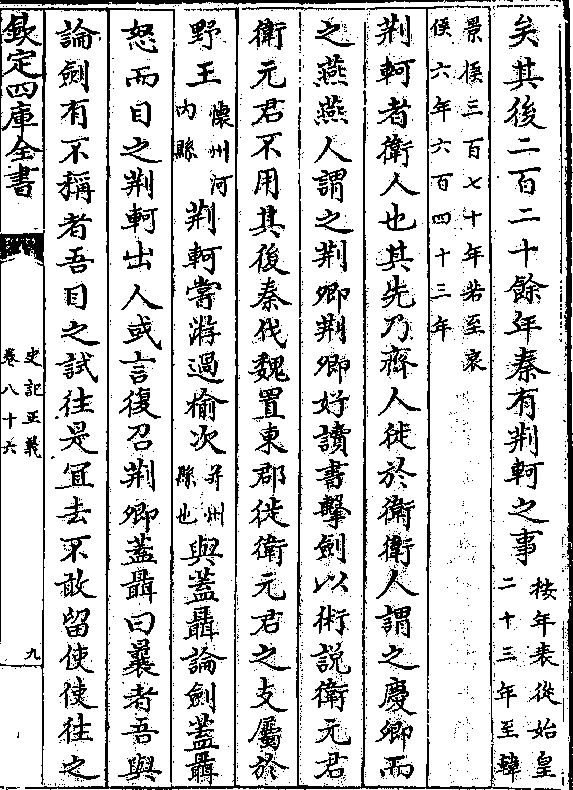 矣其後二百二十餘年秦有荆軻之事按年表從始皇二十三年至韓
景侯三百七十年若至哀侯六年六百四十三年
荆軻者衛人也其先乃齊人徙於衛衛人謂之慶卿而
之燕燕人謂之荆卿荆卿好讀書擊劍以術說衛元君
衛元君不用其後秦伐魏置東郡徙衛元君之支屬於
野王懷州河内縣荆軻嘗游過榆次并州縣也與蓋聶論劍蓋聶
怒而目之荆軻出人或言復召荆卿蓋聶曰曩者吾與
論劍有不稱者吾目之試往是宜去不敢留使使往之
欽定四庫全書
史記正義
卷八十六
九